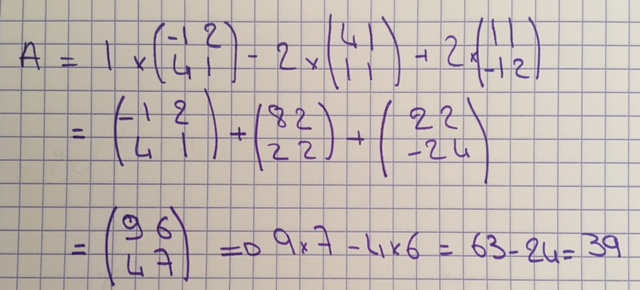 A = 1 × (-1 2 / 4 1) - 2 × (4 1 / 1 1) + 2 × (1 1 / -1 2)
= (-1 2 / 4 1) + (8 2 / 2 2) + (2 2 / -2 4)
= (9 6 / 4 7) => 9×7 - 4×6 = 63 - 24 = 39